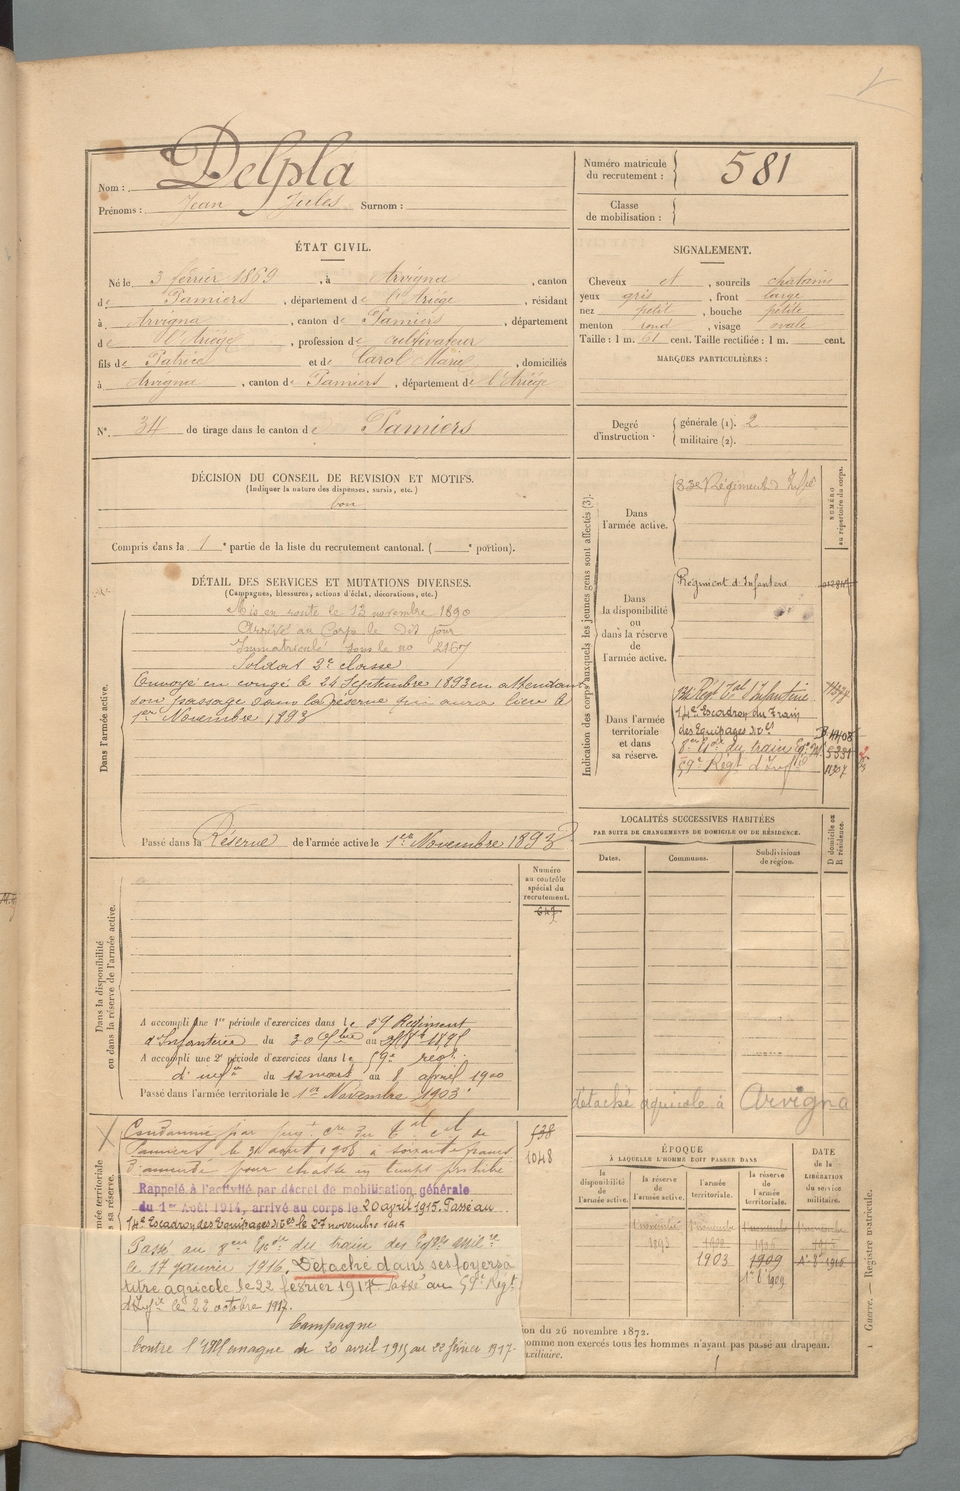 Nom : Delpla
Prénoms : Jean Jules Surnom :
Numéro matricule du recrutement : 581
Classe de mobilisation :
ÉTAT CIVIL.
Né le 3 février 1869, à Arvigna, canton
de Pamiers, département de l'Ariège, résidant
à Arvigna, canton de Pamiers, département
de l'Ariège, profession de cultivateur
fils de Patrice et de Carol Marie, domiciliés
à Arvigna, canton de Pamiers, département de l'Ariège
SIGNALEMENT.
Cheveux et, sourcils chatains
yeux gris, front large
nez petit, bouche petite
menton rond, visage ovale
Taille : 1 m. 61 cent. Taille rectifiée : 1 m. cent.
MARQUES PARTICULIÈRES :
N° 34 de tirage dans le canton de Pamiers
Degré d'instruction.
générale (1). 2
militaire (2).
DÉCISION DU CONSEIL DE REVISION ET MOTIFS.
(Indiquer la nature des dispenses, sursis, etc.)
bon
Compris dans la 1e partie de la liste du recrutement cantonal. ( e portion).
DÉTAIL DES SERVICES ET MUTATIONS DIVERSES.
(Campagnes, blessures, actions d'éclat, décorations, etc.)
Dans l'armée active.
Mis en route le 13 novembre 1890
Arrivé au Corps le Dit jour
Immatriculé sous le no 2167
Soldat 2e classe
Envoyé en congé le 24 Septembre 1893 en attendant
son passage dans la réserve qui aura lieu le
1er Novembre 1893
Passé dans la Réserve de l'armée active le 1er Novembre 1893
Indication des corps auxquels les jeunes gens sont affectés (3).
NUMÉRO au répertoire du corps.
Dans l'armée active.
83e Régiment d'Infie
Dans la disponibilité ou dans la réserve de l'armée active.
Régiment d'Infanterie
Dans l'armée territoriale et dans sa réserve.
Regt tal d'Infanterie
14e Escadron du Train
des Equipages Mres
8e Eon du train Eq. Mil. 5331
59e Régt d'Infie 11307
LOCALITÉS SUCCESSIVES HABITÉES
PAR SUITE DE CHANGEMENTS DE DOMICILE OU DE RÉSIDENCE.
Dates. Communes. Subdivisions de région. D domicile ou R résidence.
détaché agricole à Arvigna
Dans la disponibilité ou dans la réserve de l'armée active.
Numéro au contrôle spécial du recrutement.
A accompli une 1re période d'exercices dans le 59 Régiment
d'Infanterie du 30 au 1895
A accompli une 2e période d'exercices dans le 59e regt
d'infie du 12 mars au 8 avril 1900
Passé dans l'armée territoriale le 1er Novembre 1903
Condamné par jugt cre du tal civil de
Pamiers le août 1908 à soixante francs
d'amende pour chasse en temps prohibé
538
1048
Rappelé à l'activité par décret de mobilisation générale
du 1er Août 1914, arrivé au corps le 20 avril 1915. Passé au
14e Escadron des Equipages Mres le 27 novembre 1915
Passé au 8eme Eon du train des Eqges milres
le 17 janvier 1916. Détaché dans ses foyers à
titre agricole le 22 février 1917. Passé au 59e Regt
d'Infie le 22 octobre 1917.
Campagne
Contre l'Allemagne du 20 avril 1915 au 22 février 1917.
ÉPOQUE
À LAQUELLE L'HOMME DOIT PASSER DANS
la disponibilité de l'armée active.
la réserve de l'armée active.
l'armée territoriale.
la réserve de l'armée territoriale.
DATE de la LIBÉRATION du service militaire.
1893
1903
1909
1er 8e 1909
ion du 26 novembre 1872.
omme non exercés tous les hommes n'ayant pas passé au drapeau.
uxiliaire.
Guerre. — Registre matricule.